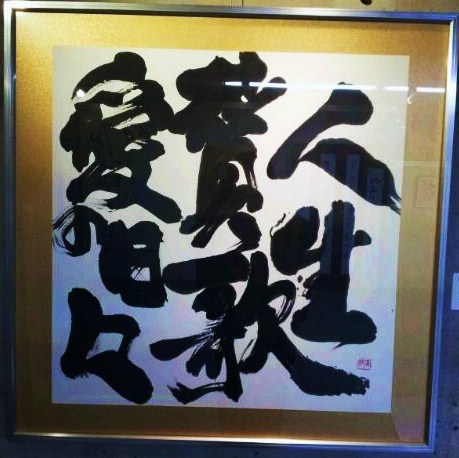 人生
賛歌
愛の日々